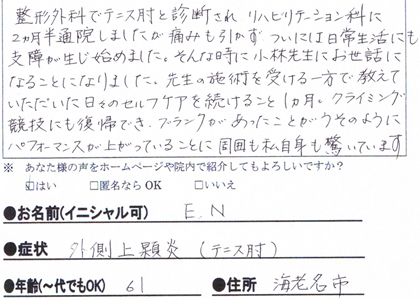 整形外科でテニス肘と診断され リハビリテーション科に
2ヵ月半通院しましたが痛みも引かず ついには日常生活にも
支障が生じ始めました。そんな時に小林先生にお世話に
なることになりました。先生の施術を受ける一方で教えて
いただいた日々のセルフケアを続けること1ヵ月。クライミング
競技にも復帰でき、ブランクがあったことがうそのように
パフォーマンスが上がっていることに周囲も私自身も驚いています
※ あなた様の声をホームページや院内で紹介してもよろしいですか?
☑はい □匿名なら OK □いいえ
●お名前(イニシャル可) E.N
●症状 外側上顆炎 (テニス肘)
●年齢(〜代でもOK) 61 ●住所 海老名市